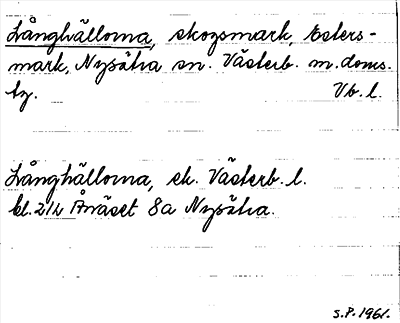 Långhällorna, skogsmark, Esters-
mark, Nysätra sn. Västerb. m. doms.
tg. Vb. l.
Långhällorna, ek. Västerb. l.
bl. 212 Ånäset 8a Nysätra.
S.P. 1961.